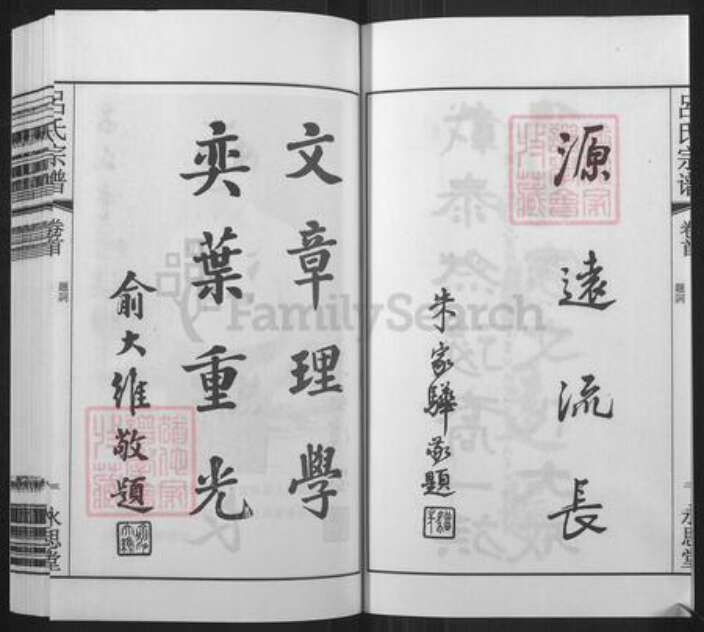 呂氏宗譜
卷首
題詞
永思堂
源遠流長
朱家驊敬題
文章理學
奕葉重光
俞大維敬題
呂氏宗譜
卷首
題詞
永思堂
FamilySearch